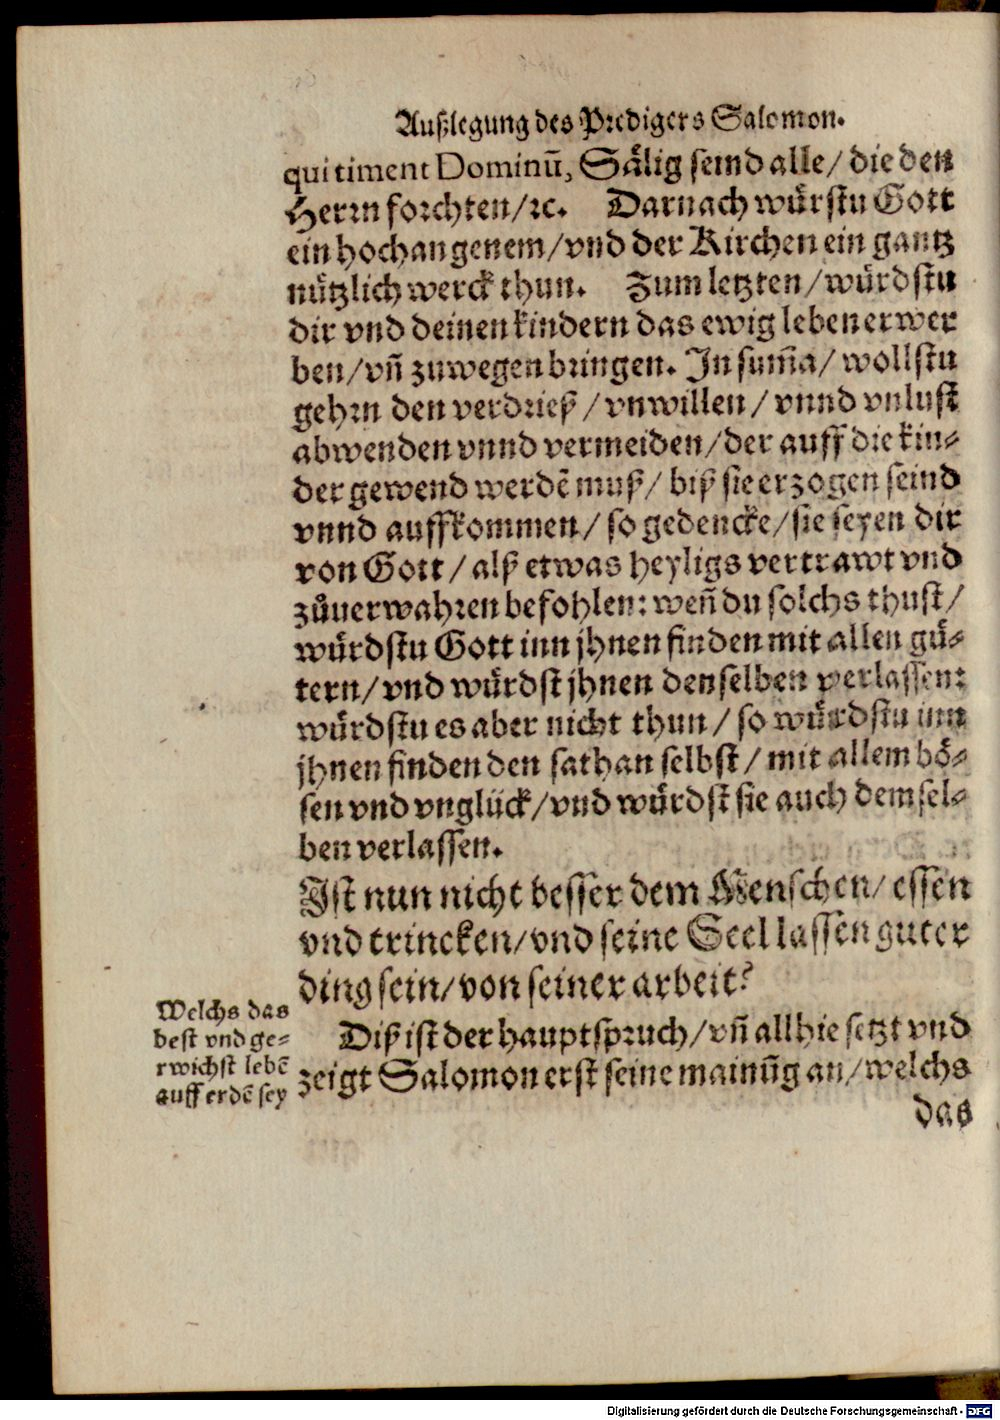 Außlegung des Predigers Salomon.
qui timent Dominū, Sälig seind alle/ die den
Herrn forchten/ꝛc. Darnach würstu Gott
ein hochangenem/vnd der Kirchen ein gantz
nützlich werck thun. Zum letzten/würdstu
dir vnd deinen kindern das ewig leben erwer
ben/vñ zuwegen bringen. In sum̃a/ wollstu
gehrn den verdrieß/vnwillen/vnnd vnlust
abwenden vnnd vermeiden/der auff die kin⸗
der gewend werdē muß/ biß sie erzogen seind
vnnd auffkommen/so gedencke/sie seyen dir
von Gott/alß etwas heyligs vertrawt vnd
zůuerwahren befohlen: weñ du solchs thust/
würdstu Gott inn jhnen finden mit allen gü⸗
tern/vnd würdst jhnen denselben verlassen:
würdstu es aber nicht thun/so würdstu inn
jhnen finden den sathan selbst/mit allem bö⸗
sen vnd vnglück/vnd würdst sie auch demsel⸗
ben verlassen.
Ist nun nicht besser dem Menschen/essen
vnd trincken/vnd seine Seel lassen guter
ding sein/von seiner arbeit?
Welchs das
best vnd ge⸗
rwichst lebē
auff erdē sey
Diß ist der hauptspruch/vñ allhie setzt vnd
zeigt Salomon erst seine mainūg an/welchs
das
Digitalisierung gefördert durch die Deutsche Forschungsgemeinschaft - DFG